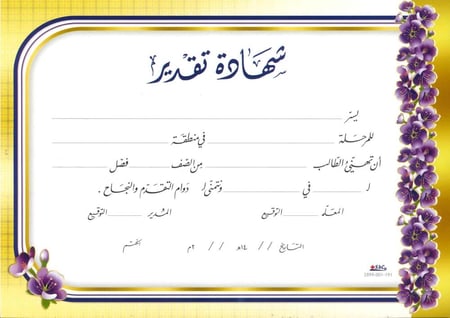 شهادة تقدير
يسر
للمرحلة في منطقة
أن تهنئ الطالب من الصف فضل
لـ في وتتمنى لـ دوام التقدم والنجاح .
المعلم التوقيع المدير التوقيع
التاريخ / / ١٤هـ / / ٢م الختم